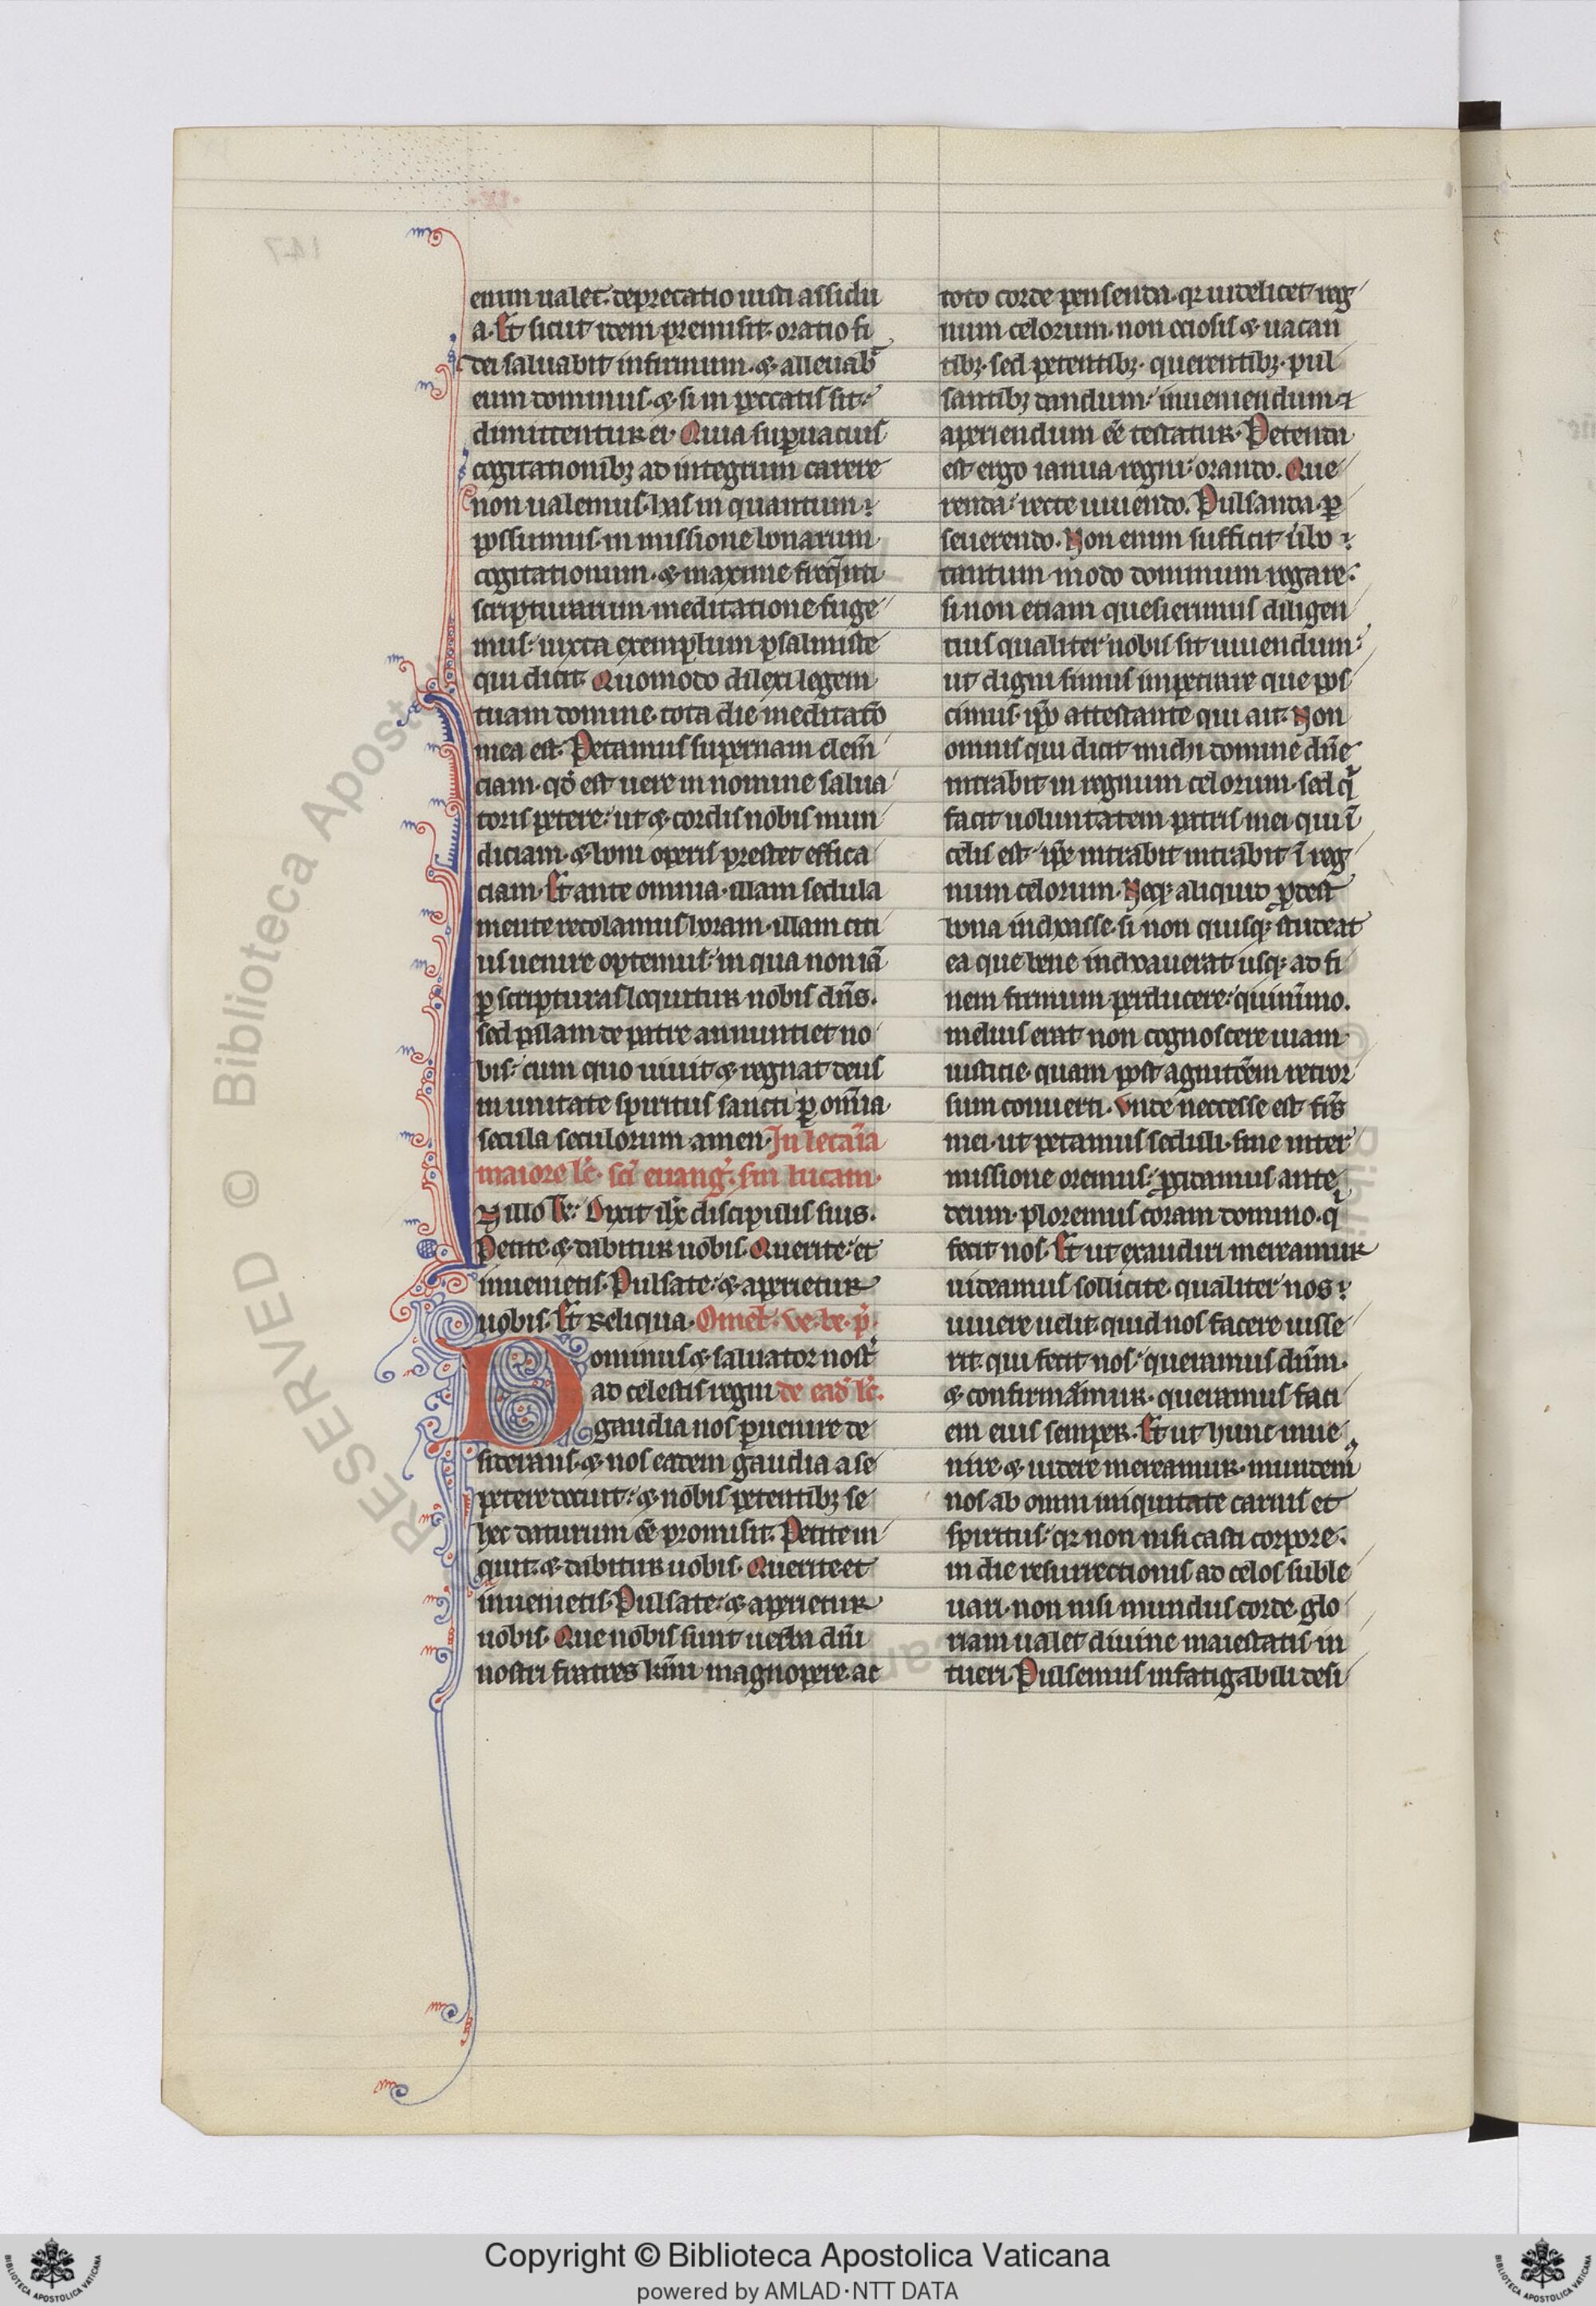 enim ualet. deprecatio iusti assidu
a. Et sicut idem premisit. oratio fi
dei saluabit infirmum. & alleuabͭ
eum dominus. & si in peccatis sit:
dimittentur ei. Quia sup̱uacuis
cogitationibꝫ ad integrum carere
non ualemus. has in quantum
possumus. in missione bonarum
cogitationum. & maxime freq̄nti
scripturarum meditatione fuge
mus: iuxta exemplum psalmiste
qui dicit. Quomodo dilexi legem
tuam domine. tota die meditatō
mea est. Petamus supernam clem̄
ciam. qđ est uere in nomine salua
toris petere: ut & cordis nobis mun
diciam. & boni operis prestet effica
ciam. Et ante omnia. illam sedula
mente recolamus horam. illam citi
us uenire optemus: in qua non iā
ꝑ scripturas loquitur nobis dn̄s.
sed palam de patre annuntiet no
bis: cum quo uiuit & regnat deus
in unitate spiritus sancti ꝑ om̄ia
secula seculorum amen. In letaīa
maiore lc̄. sci euang̃. sm̄ lucam.
In illo t̄: Dixit ihc̄ discipulis suis.
Petite. & dabitur uobis. Querite: et
inuenietis. Pulsate: & aperietur
uobis. Et reliqua. Omel. ve. be. p̄.
Dominus & saluator nost̄
ad celestis regni de ead̄ lc̄.
gaudia nos ꝑuenire de
siderans. & nos eadem gaudia a se
petere docuit: & nobis petentibꝫ se
hec daturum eē promisit. Petite in
quit. & dabitur uobis. Querite et
inuenietis. Pulsate: & aperietur
uobis. Que nobis sunt uerba dn̄i
nostri fratres km̄i magnopere. ac
toto corde pensenda. qꝛ uidelicet reg
num celorum. non ociosis & uacan
tibꝫ. sed petentibꝫ. querentibꝫ. pul
santibꝫ dandum: inueniendum ⁊
aperiendum eē testatur. Petenda
est ergo ianua regni: orando. Que
renda: recte uiuendo. Pulsanda. ꝑ
seuerendo. Non enim sufficit ūbo
tantum modo dominum rogare:
si non etiam quesierimus diligen
tius qualiter nobis sit uiuendum:
ut digni simus impetrare que pos
cimus. ip̄o attestante qui ait. Non
omnis qui dicit michi domine dn̄e
intrabit in regnum celorum. sed qͥ
facit uoluntatem patris mei qui ī
celis est. ip̄e intrabit intrabit ī reg
num celorum. Neqꝫ aliquid ꝓdest
bona inchoasse. si non quisqꝫ studeat
ea que bene inchoauerat usqꝫ ad fi
nem firmum perducere: quinīmo.
melius erat non cognoscere uiam
iusticie. quam post agnitōem retror
sum conuerti. Vnde neccesse est fr̄s
mei. ut petamus seduli. sine inter
missione oremus: ꝓcidamus ante
deum. ploremus coram domino. qͥ
fecit nos. Et ut exaudiri mereamur
uideamus sollicite. qualiter nos
uiuere uelit. quid nos facere iusse
rit. qui fecit nos: queramus dn̄m.
& confirmamur. queramus faci
em eius semper. Et ut hunc inue
nire. & uidere mereamur. mundem̄
nos ab omni iniquitate carnis et
spiritus: qꝛ non nisi casti corpore.
in die resurrectionis ad celos suble
uari. non nisi mundus corde. glo
riam ualet diuine maiestatis in
tueri. Pulsemus infatigabili desi
RESERVED © Biblioteca Apostolica Vaticana
Copyright © Biblioteca Apostolica Vaticana
powered by AMLAD·NTT DATA